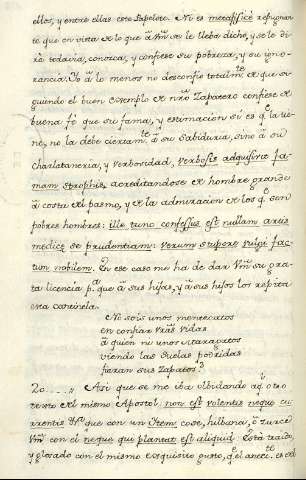 ellos, y entre ellas este Papelote. Ni es metafisicè repugnan
te que en vista de lo que à Vm. se le lleba dicho, y se le di
rà todavia, conozca, y confiese su pobreza, y su igno-
rancia. Yo à lo menos no desconfio totalmte. de que si-
guiendo el buen exemplo de nro. Zapatero confiese de
buena fè que su fama, y estimacion si es qe. la tie-
ne, no la debe ciertamte. à su sabiduria, sino à su
charlataneria, y verbosidad, verbosis adquisivit fa-
mam strophis, acreditandose de hombre grande
à costa del pasmo, y de la admiracion de los qe. son
pobres hombres: ille tunc confessus est nullam artis
medicæ se prudentiam: verum stupore vulgi fac-
tum nobilem. En ese caso me ha de dar Vm. su gra-
ta licencia pa. que à sus hijas, y à sus hijos los repita
esta cantinela.
No sois unos mentecatos
en confiar vras. vidas
à quien no unos zitaxapatos
viendo las suelas podridas
fiaron sus zapatos?
20..... Asi que se me iba olbidando aql. otro
texto del mismo Apostol, non est volentis neque cu-
rrentis &a. que con un Item cose, hilbana, ò zurce
Vm. con el neque qui plantat est aliquid. Está traido,
y glosado con el mismo exquisito gusto, qe. el antect. es el